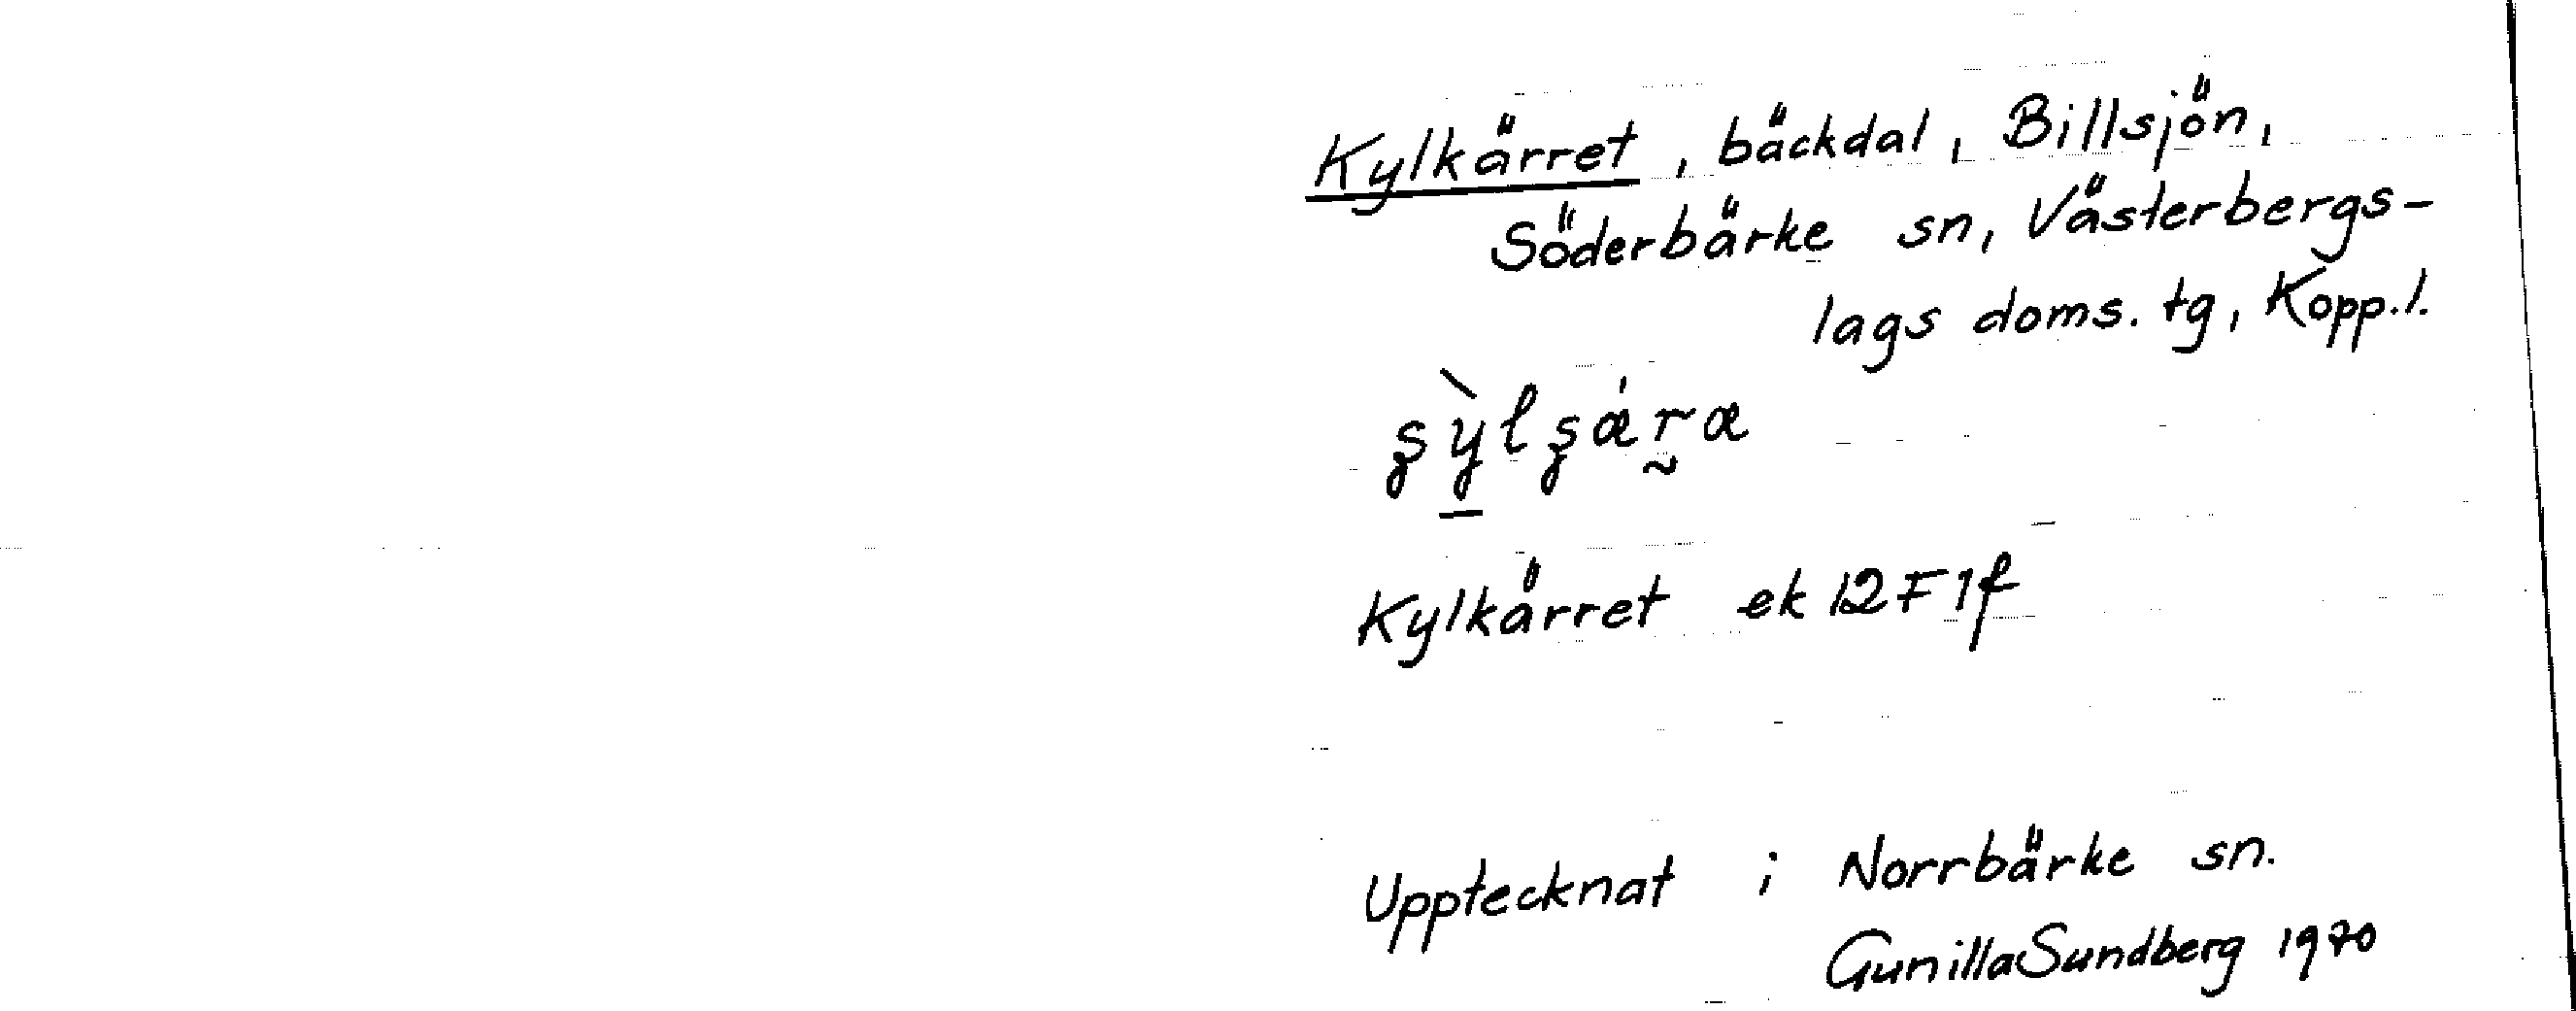 Kylkärret, bäckdal, Billsjön,
Söderbärke sn, Västerbergs-
lags doms. tg, Kopp.l.
Kylkärret ek 12F1f
Upptecknat i Norrbärke sn.
Gunilla Sundberg 1970